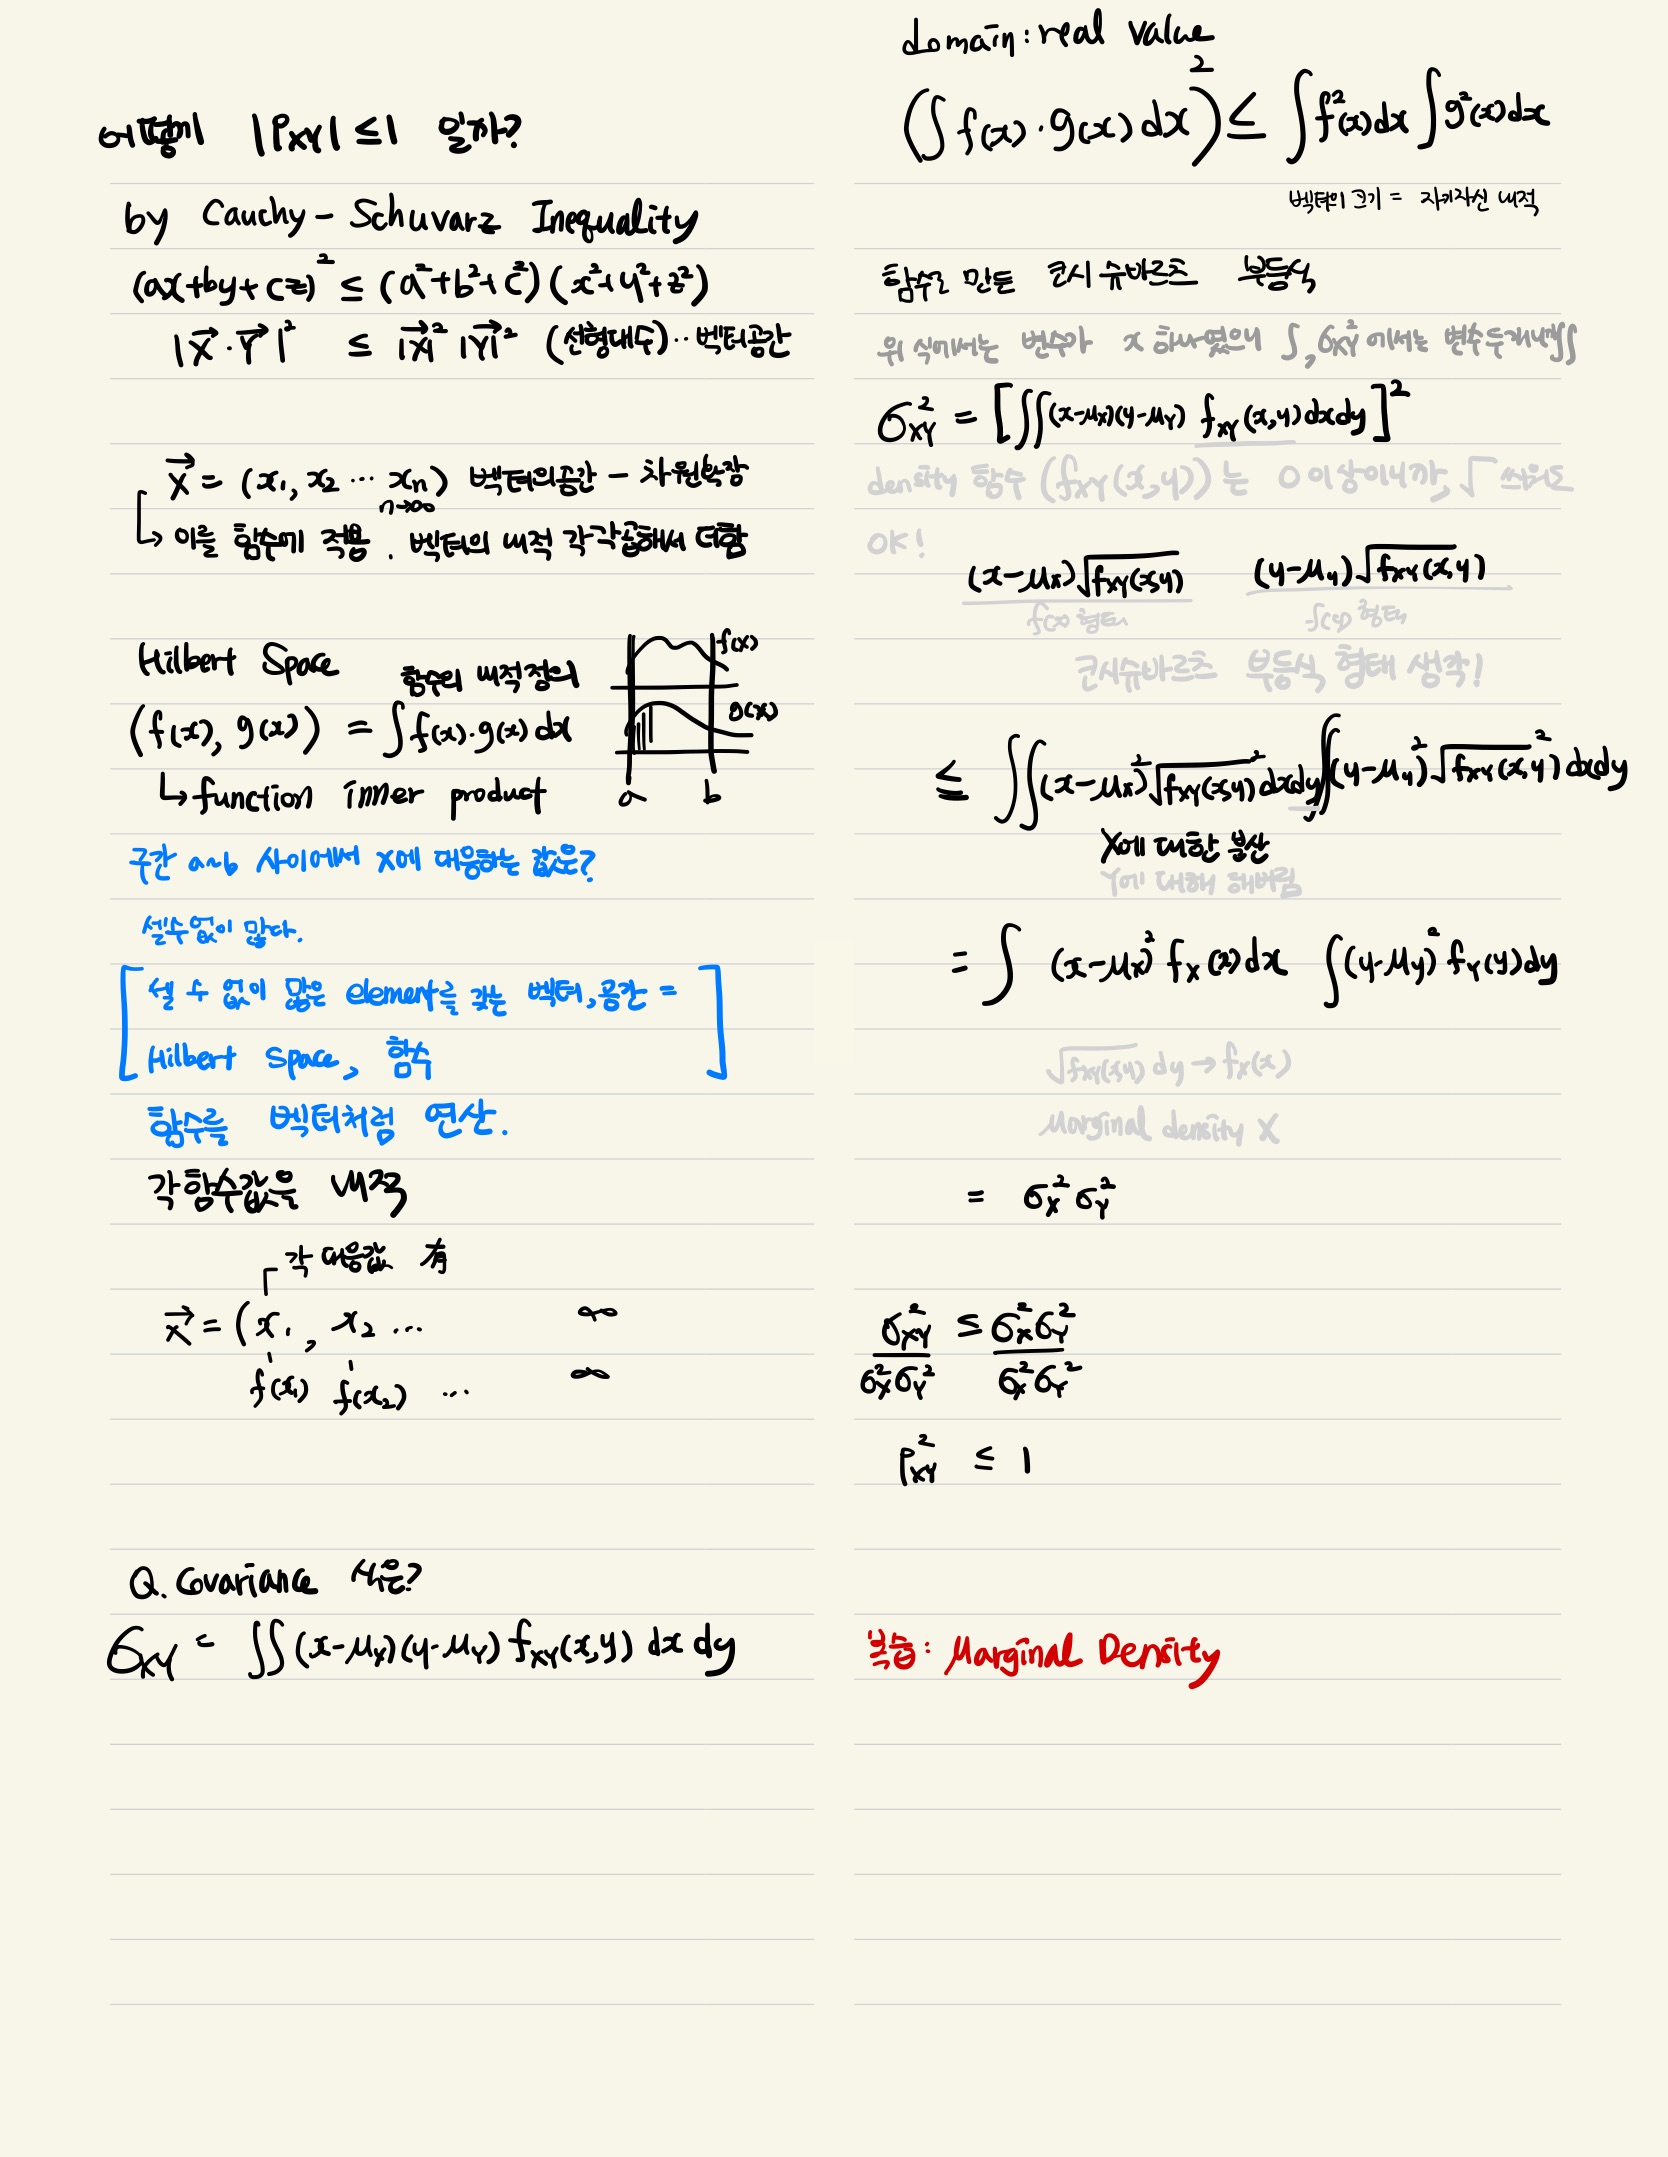 어떻게 |ρXY| ≤ 1 일까?
by Cauchy - Schuvarz Inequality
(ax+by+cz)² ≤ (a²+b²+c²)(x²+y²+z²)
|X⃗·Y⃗|² ≤ |X⃗|² |Y⃗|² (선형대수)·· 벡터공간
X⃗ = (x₁, x₂ ··· xn) 벡터의공간 - 차원확장
n→∞
↳ 이를 함수에 적용. 벡터의 내적 각각곱해서 더함
Hilbert Space 함수의 내적정의
f(x)
(f(x), g(x)) = ∫ f(x)·g(x) dx
g(x)
↳ function inner product
a b
구간 a~b 사이에서 x에 대응하는 값은?
셀수없이 많다.
[셀 수 없이 많은 element를 갖는 벡터, 공간 =
Hilbert Space, 함수]
함수를 벡터처럼 연산.
각함수값을 내적
각 대응값 有
X⃗ = (x₁, x₂ ··· ∞
f(x₁) f(x₂) ··· ∞
Q. Covariance 식은?
σXY = ∬ (x-μX)(y-μY) fXY(x,y) dx dy
domain: real value
(∫ f(x)·g(x) dx)² ≤ ∫ f²(x)dx ∫ g²(x)dx
벡터의 크기 = 자기자신 내적
함수로 만든 코시 슈바르츠 부등식
위 식에서는 변수가 x 하나였으니 ∫, σXY² 에서는 변수두개니까∬
σXY² = [∬(x-μX)(y-μY) fXY(x,y)dxdy]²
density 함수 (fXY(x,y))는 0이상이니까, √ 씌워도
OK!
(x-μX)√fXY(x,y) (y-μY)√fXY(x,y)
f(x) 형태 f(y) 형태
코시슈바르츠 부등식 형태 생각!
≤ ∬(x-μX)²√fXY(x,y)² dxdy ∬(y-μY)²√fXY(x,y)² dxdy
X에 대한 분산
Y에 대해 해버림
= ∫ (x-μX)² fX(x)dx ∫(y-μY)² fY(y)dy
√fXY(x,y) dy → fX(x)
Marginal density X
= σX² σY²
σXY² / σX²σY² ≤ σX²σY² / σX²σY²
ρXY² ≤ 1
복습: Marginal Density